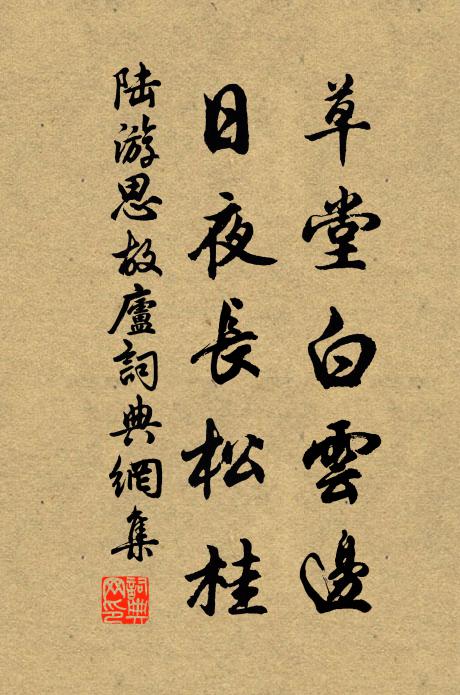 草堂白雲邊
日夜長松桂
陸游思故廬詞典網集
詞典网印